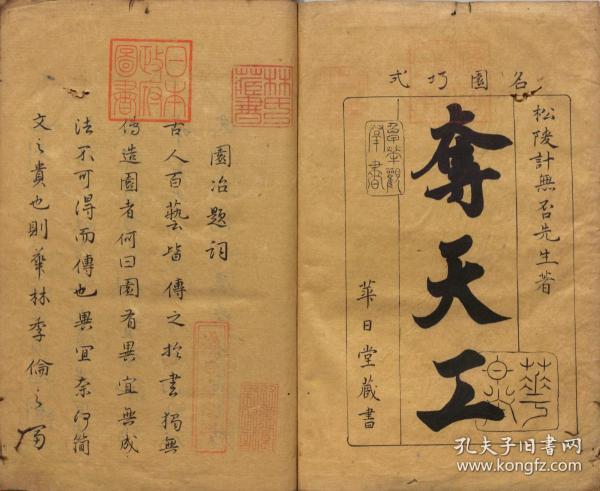 名園巧式
松陵計無否先生著
奪天工
華日堂藏書
日本政府圖書
林氏藏書
園冶題詞
古人百藝皆傳之於書獨無
傳造園者何曰園有異宜無成
法不可得而傳也異宜奈何簡
文之貴也則華林季倫之富
孔夫子旧书网
www.kongfz.com